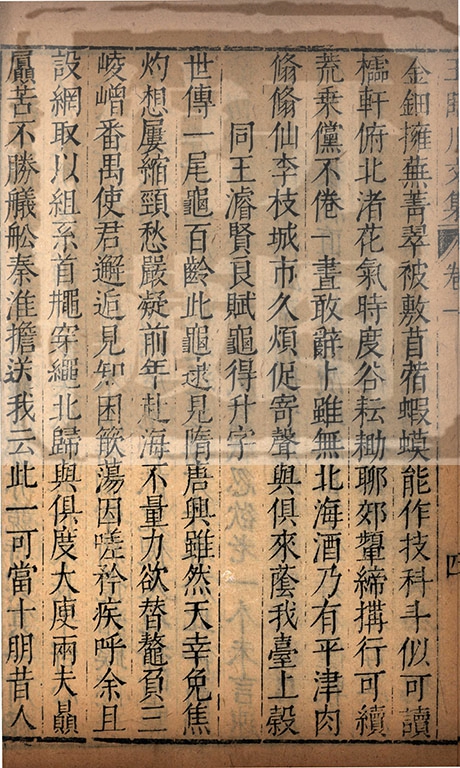 王臨川文集 卷一 四
金鈿擁蕪菁翠被敷苜蓿蝦蟆能作技科斗似可讀
檽軒俯北渚花氣時度谷耘耡聊郊犖締搆行可續
荒乘儻不倦一晝敢辭卜雖無北海酒乃有平津肉
翛翛仙李枝城市久煩促寄聲與俱來蔭我臺上穀
同王濬賢良賦龜得升字
世傳一尾龜百齡此龜逮見隋唐興雖然天幸免焦
灼想屢縮頸愁嚴凝前年赴海不量力欲替鼇負三
崚嶒番禺使君邂逅見知困簸蕩因嗟矜疾呼余且
設網取以組系首艇穿繩北歸與俱度大庾兩夫贔
屭苦不勝艤舩秦淮擔送我云此一可當十朋昔人